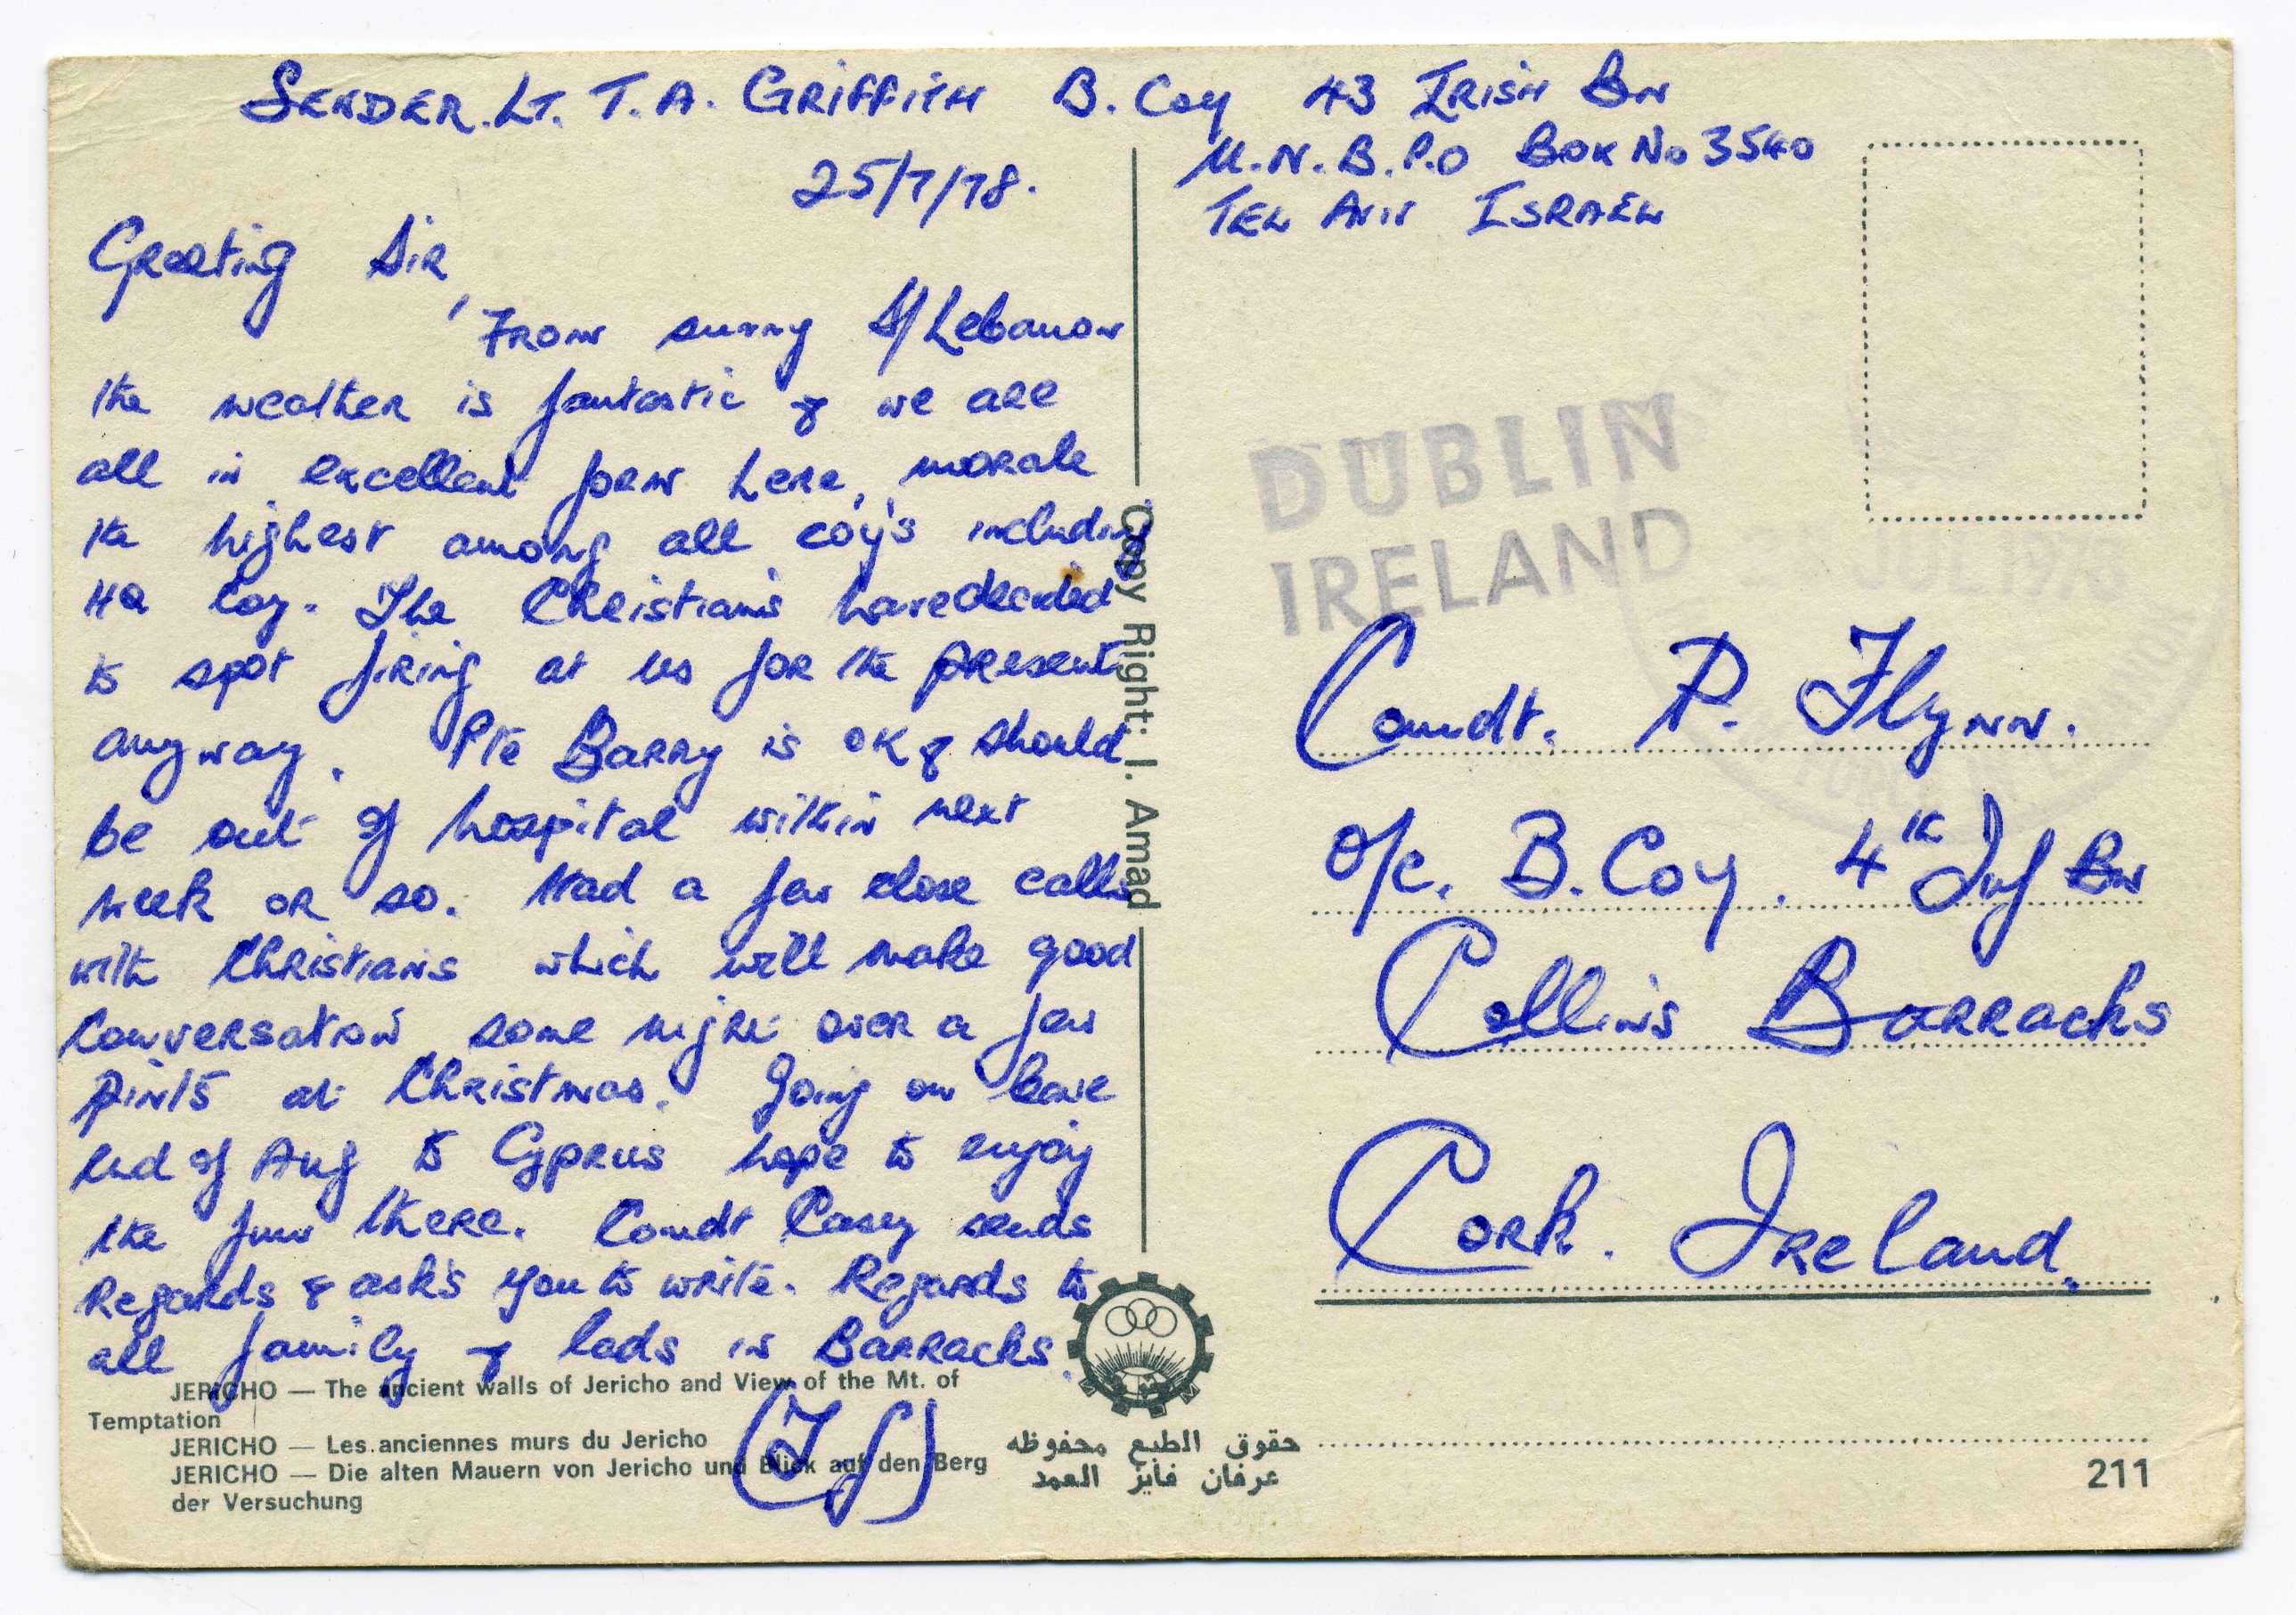 SENDER. LT. T. A. GRIFFITH B. Coy 43 IRISH BN
U.N.B.P.O BOX No 3540
TEL AVIV ISRAEL
25/7/78.
Greeting Sir,
From sunny S/Lebanon
the weather is fantastic & we are
all in excellent form here, morale
the highest among all coy's including
HQ Coy. The Christians have decided
to spot firing at us for the present
anyway. Pte Barry is OK & should
be out of hospital within next
week or so. Had a few close calls
with Christians which will make good
conversation some night over a few
pints at Christmas. Going on leave
end of Aug to Cyprus hope to enjoy
the fun there. Comdt Casey sends
Regards & ask's you to write. Regards to
all family & lads in Barracks.
JERICHO — The ancient walls of Jericho and View of the Mt. of
Temptation
JERICHO — Les anciennes murs du Jericho
JERICHO — Die alten Mauern von Jericho und Blick auf den Berg
der Versuchung
Copy Right: I. Amad
حقوق الطبع محفوظه
عرفان فايز العمد
DUBLIN
IRELAND
Comdt. P. Flynn.
O/C. B. Coy. 4th Inf Bn
Collins Barracks
Cork. Ireland.
211